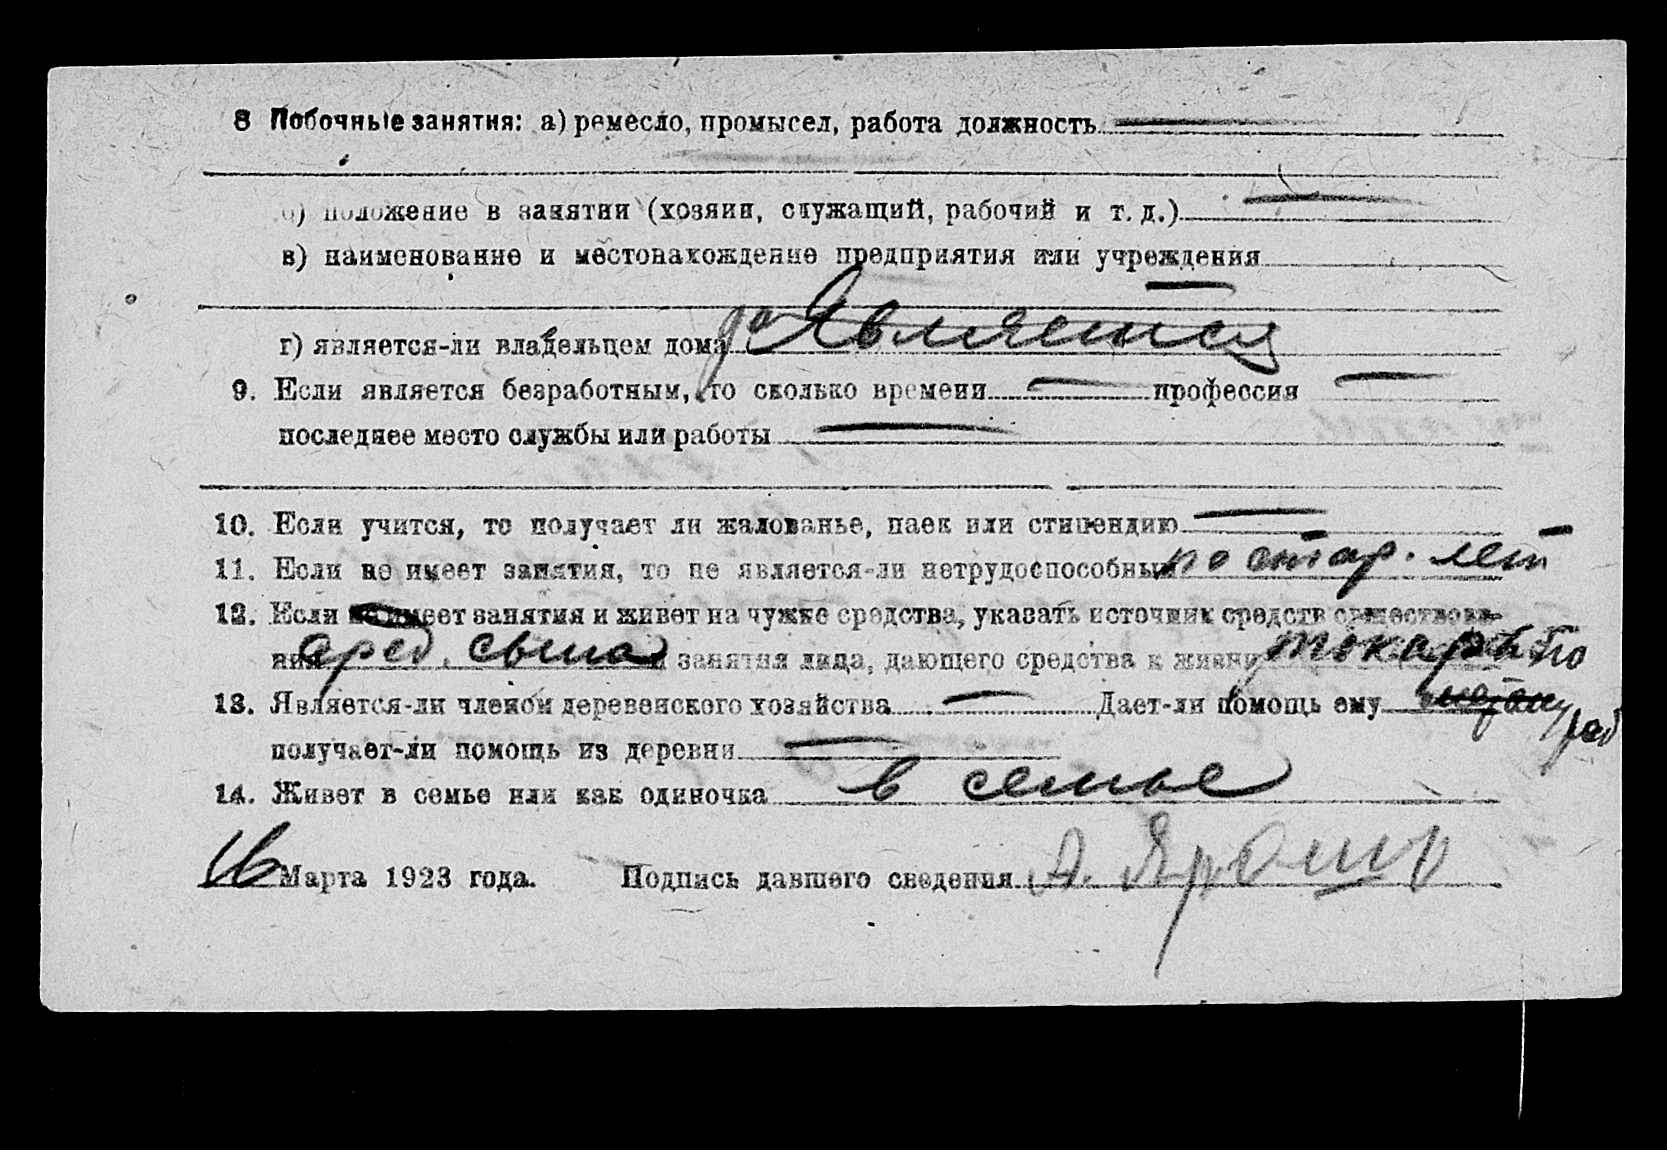 8 Побочные занятия: а) ремесло, промысел, работа должность
б) положение в занятии (хозяин, служащий, рабочий и т. д.)
в) наименование и местонахождение предприятия или учреждения
г) является-ли владельцем дома да Является
9. Если является безработным, то сколько времени профессия
последнее место службы или работы
10. Если учится, то получает ли жалованье, паек или стипендию
11. Если не имеет занятия, то не является-ли нетрудоспособным по стар. лет
12. Если не имеет занятия и живет на чужие средства, указать источник средств существова-
ния сред. сына и занятия лица, дающего средства к жизни токарь по
13. Является-ли членом деревенского хозяйства Дает-ли помощь ему
получает-ли помощь из деревни
14. Живет в семье или как одиночка в семье
16 Марта 1923 года. Подпись давшего сведения А. Ярош